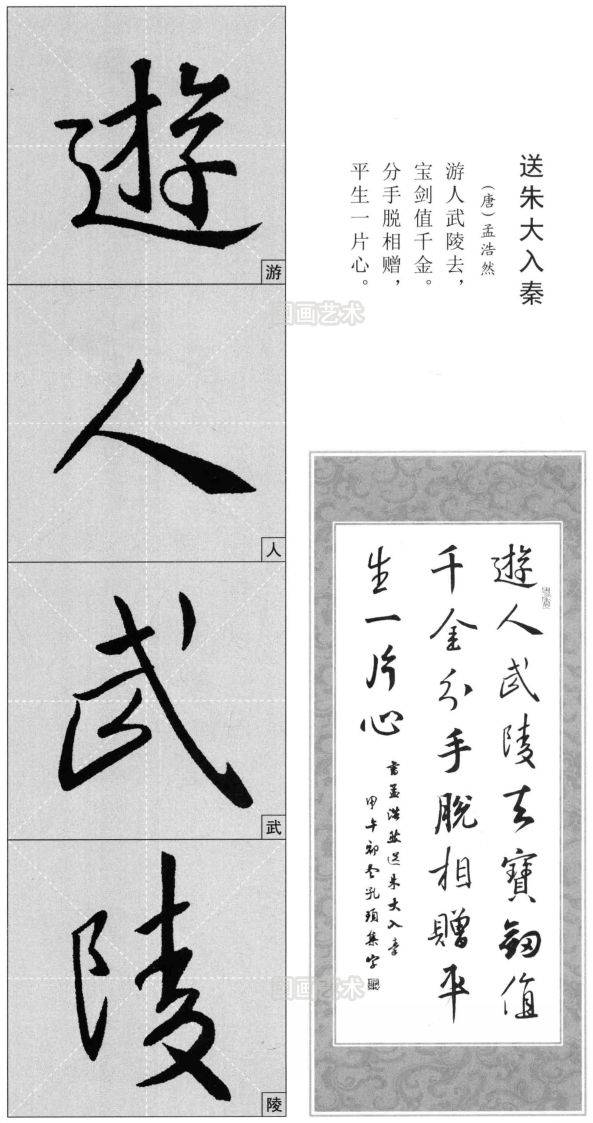 送朱大入秦
（唐）孟浩然
游人武陵去，
宝剑值千金。
分手脱相赠，
平生一片心。
遊
游
人
人
武
武
陵
陵
遊人武陵去寶劔值
千金分手脫相贈平
生一片心
書孟浩然送朱大入秦
甲午初冬孔項集字
国画艺术
国画艺术